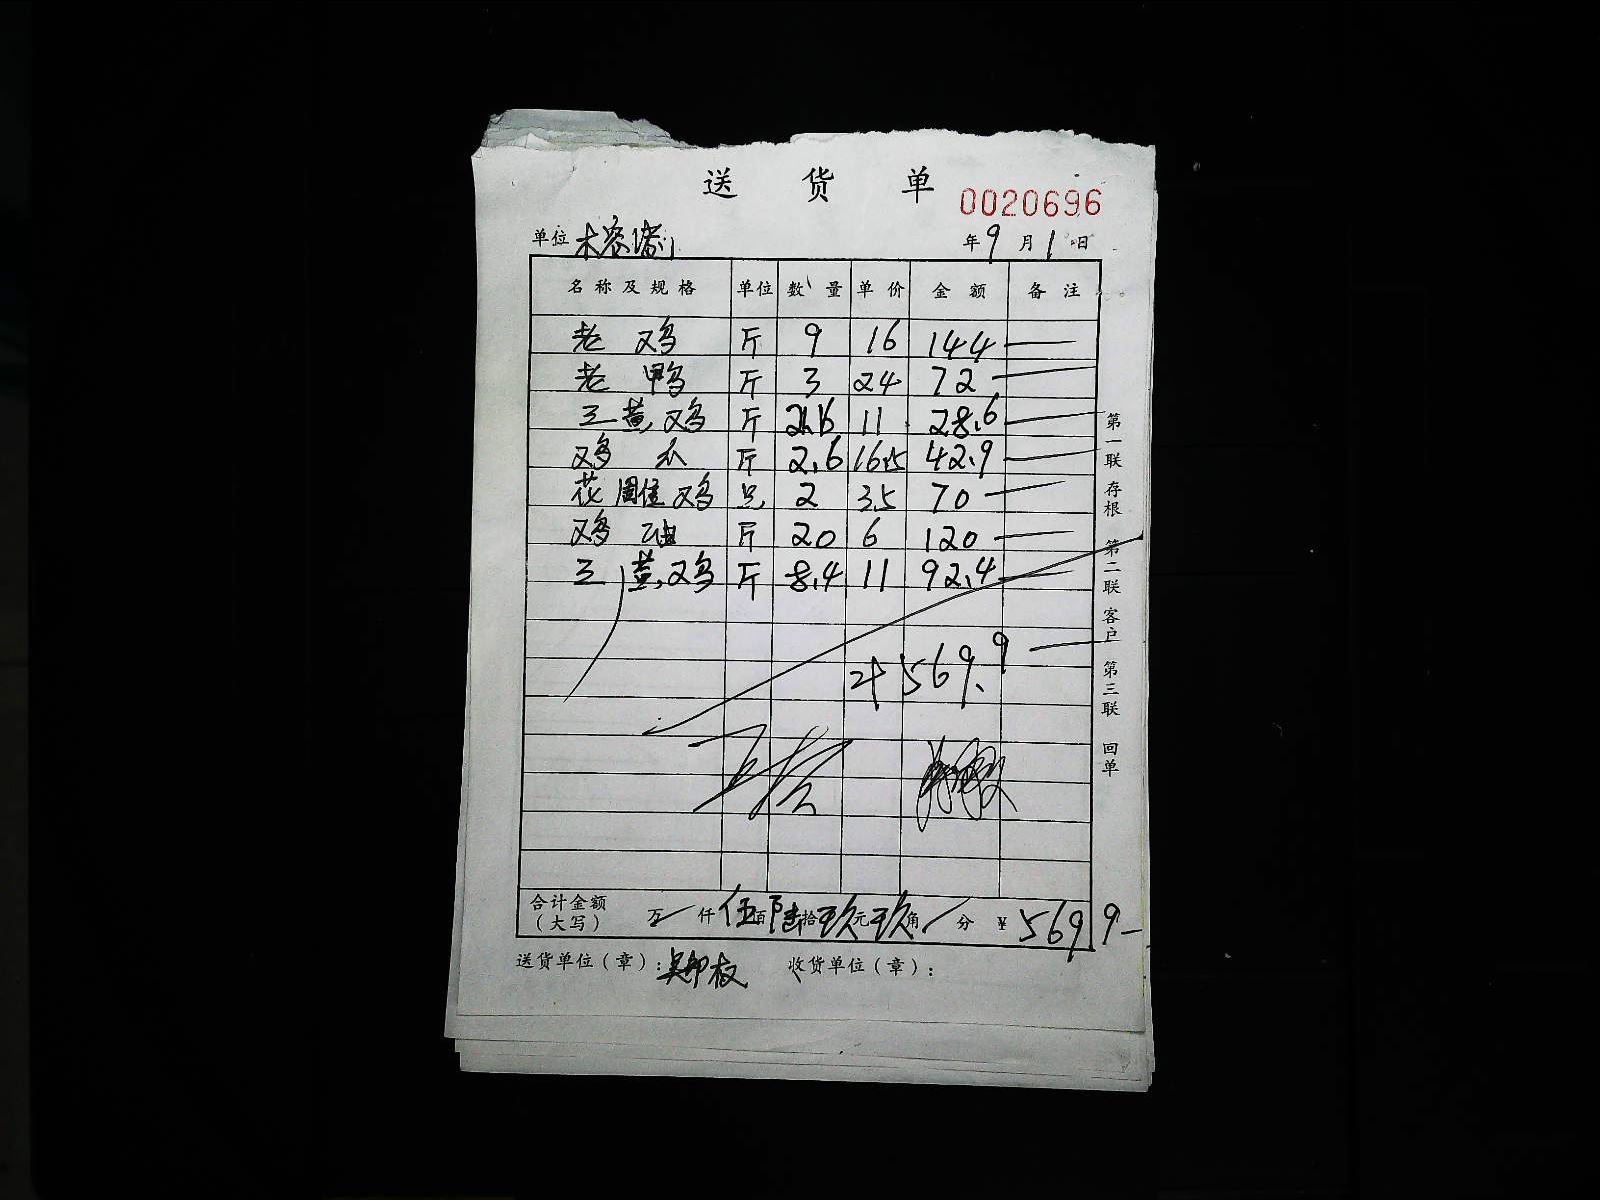 送 货 单
0020696
单位 年9月1日
名称及规格 单位 数量 单价 金额 备注
老鸡 斤 9 16 144
老鸭 斤 3 24 72
三黄鸡 斤 2.6 11 28.6
鸡爪 斤 2.6 16.5 42.9
花 鸡 只 2 35 70
鸡油 斤 20 6 120
三黄鸡 斤 8.4 11 92.4
计 569.9
合计金额（大写） 万 仟 伍佰 陆拾 玖元 玖角 分 ¥ 569.9
送货单位（章）： 收货单位（章）：
第一联 存根 第二联 客户 第三联 回单